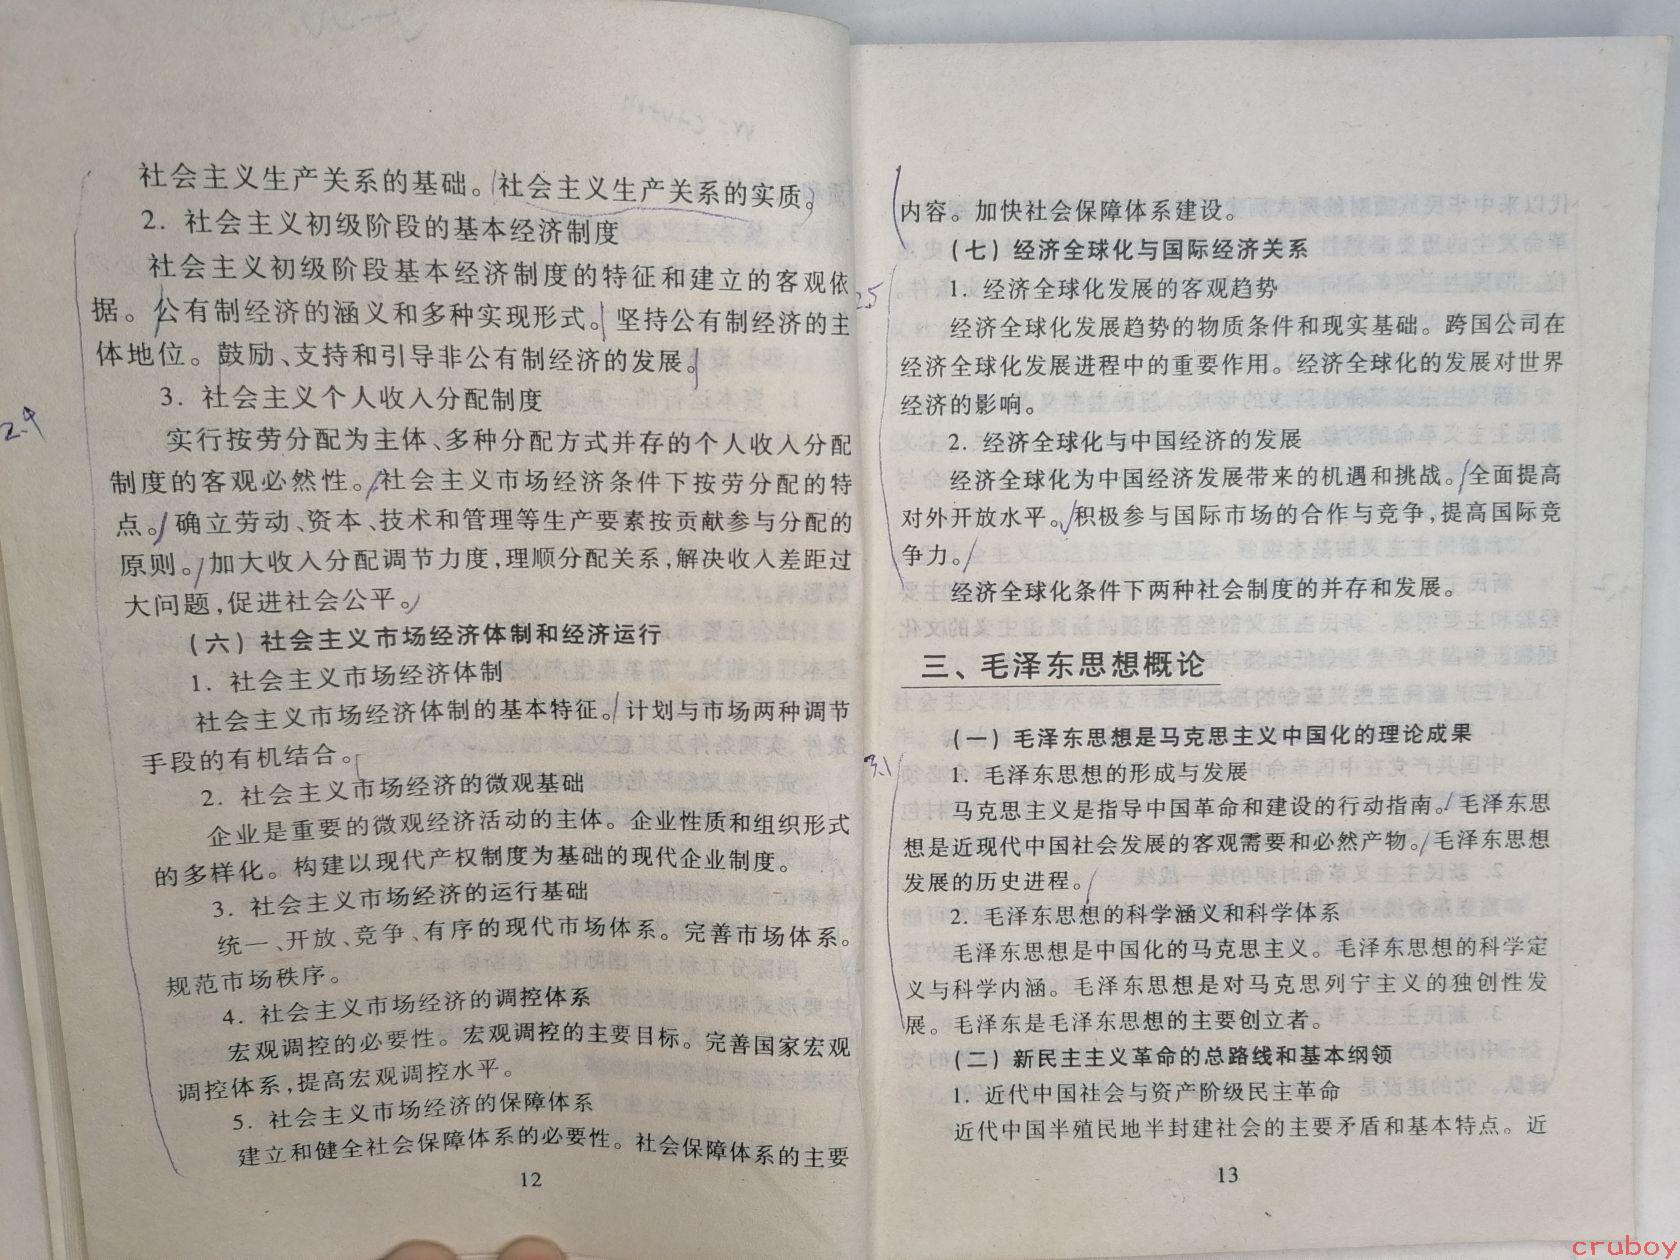 社会主义生产关系的基础。社会主义生产关系的实质。
2. 社会主义初级阶段的基本经济制度
社会主义初级阶段基本经济制度的特征和建立的客观依
据。公有制经济的涵义和多种实现形式。坚持公有制经济的主
体地位。鼓励、支持和引导非公有制经济的发展。
3. 社会主义个人收入分配制度
2.4
实行按劳分配为主体、多种分配方式并存的个人收入分配
制度的客观必然性。社会主义市场经济条件下按劳分配的特
点。确立劳动、资本、技术和管理等生产要素按贡献参与分配的
原则。加大收入分配调节力度,理顺分配关系,解决收入差距过
大问题,促进社会公平。
(六)社会主义市场经济体制和经济运行
1. 社会主义市场经济体制
社会主义市场经济体制的基本特征。计划与市场两种调节
手段的有机结合。
2. 社会主义市场经济的微观基础
企业是重要的微观经济活动的主体。企业性质和组织形式
的多样化。构建以现代产权制度为基础的现代企业制度。
3. 社会主义市场经济的运行基础
统一、开放、竞争、有序的现代市场体系。完善市场体系。
规范市场秩序。
4. 社会主义市场经济的调控体系
宏观调控的必要性。宏观调控的主要目标。完善国家宏观
调控体系,提高宏观调控水平。
5. 社会主义市场经济的保障体系
建立和健全社会保障体系的必要性。社会保障体系的主要
12
内容。加快社会保障体系建设。
(七)经济全球化与国际经济关系
2.5
1. 经济全球化发展的客观趋势
经济全球化发展趋势的物质条件和现实基础。跨国公司在
经济全球化发展进程中的重要作用。经济全球化的发展对世界
经济的影响。
2. 经济全球化与中国经济的发展
经济全球化为中国经济发展带来的机遇和挑战。全面提高
对外开放水平。积极参与国际市场的合作与竞争,提高国际竞
争力。
经济全球化条件下两种社会制度的并存和发展。
三、毛泽东思想概论
(一)毛泽东思想是马克思主义中国化的理论成果
3.1
1. 毛泽东思想的形成与发展
马克思主义是指导中国革命和建设的行动指南。毛泽东思
想是近现代中国社会发展的客观需要和必然产物。毛泽东思想
发展的历史进程。
2. 毛泽东思想的科学涵义和科学体系
毛泽东思想是中国化的马克思主义。毛泽东思想的科学定
义与科学内涵。毛泽东思想是对马克思列宁主义的独创性发
展。毛泽东是毛泽东思想的主要创立者。
(二)新民主主义革命的总路线和基本纲领
1. 近代中国社会与资产阶级民主革命
近代中国半殖民地半封建社会的主要矛盾和基本特点。近
13
cruboy